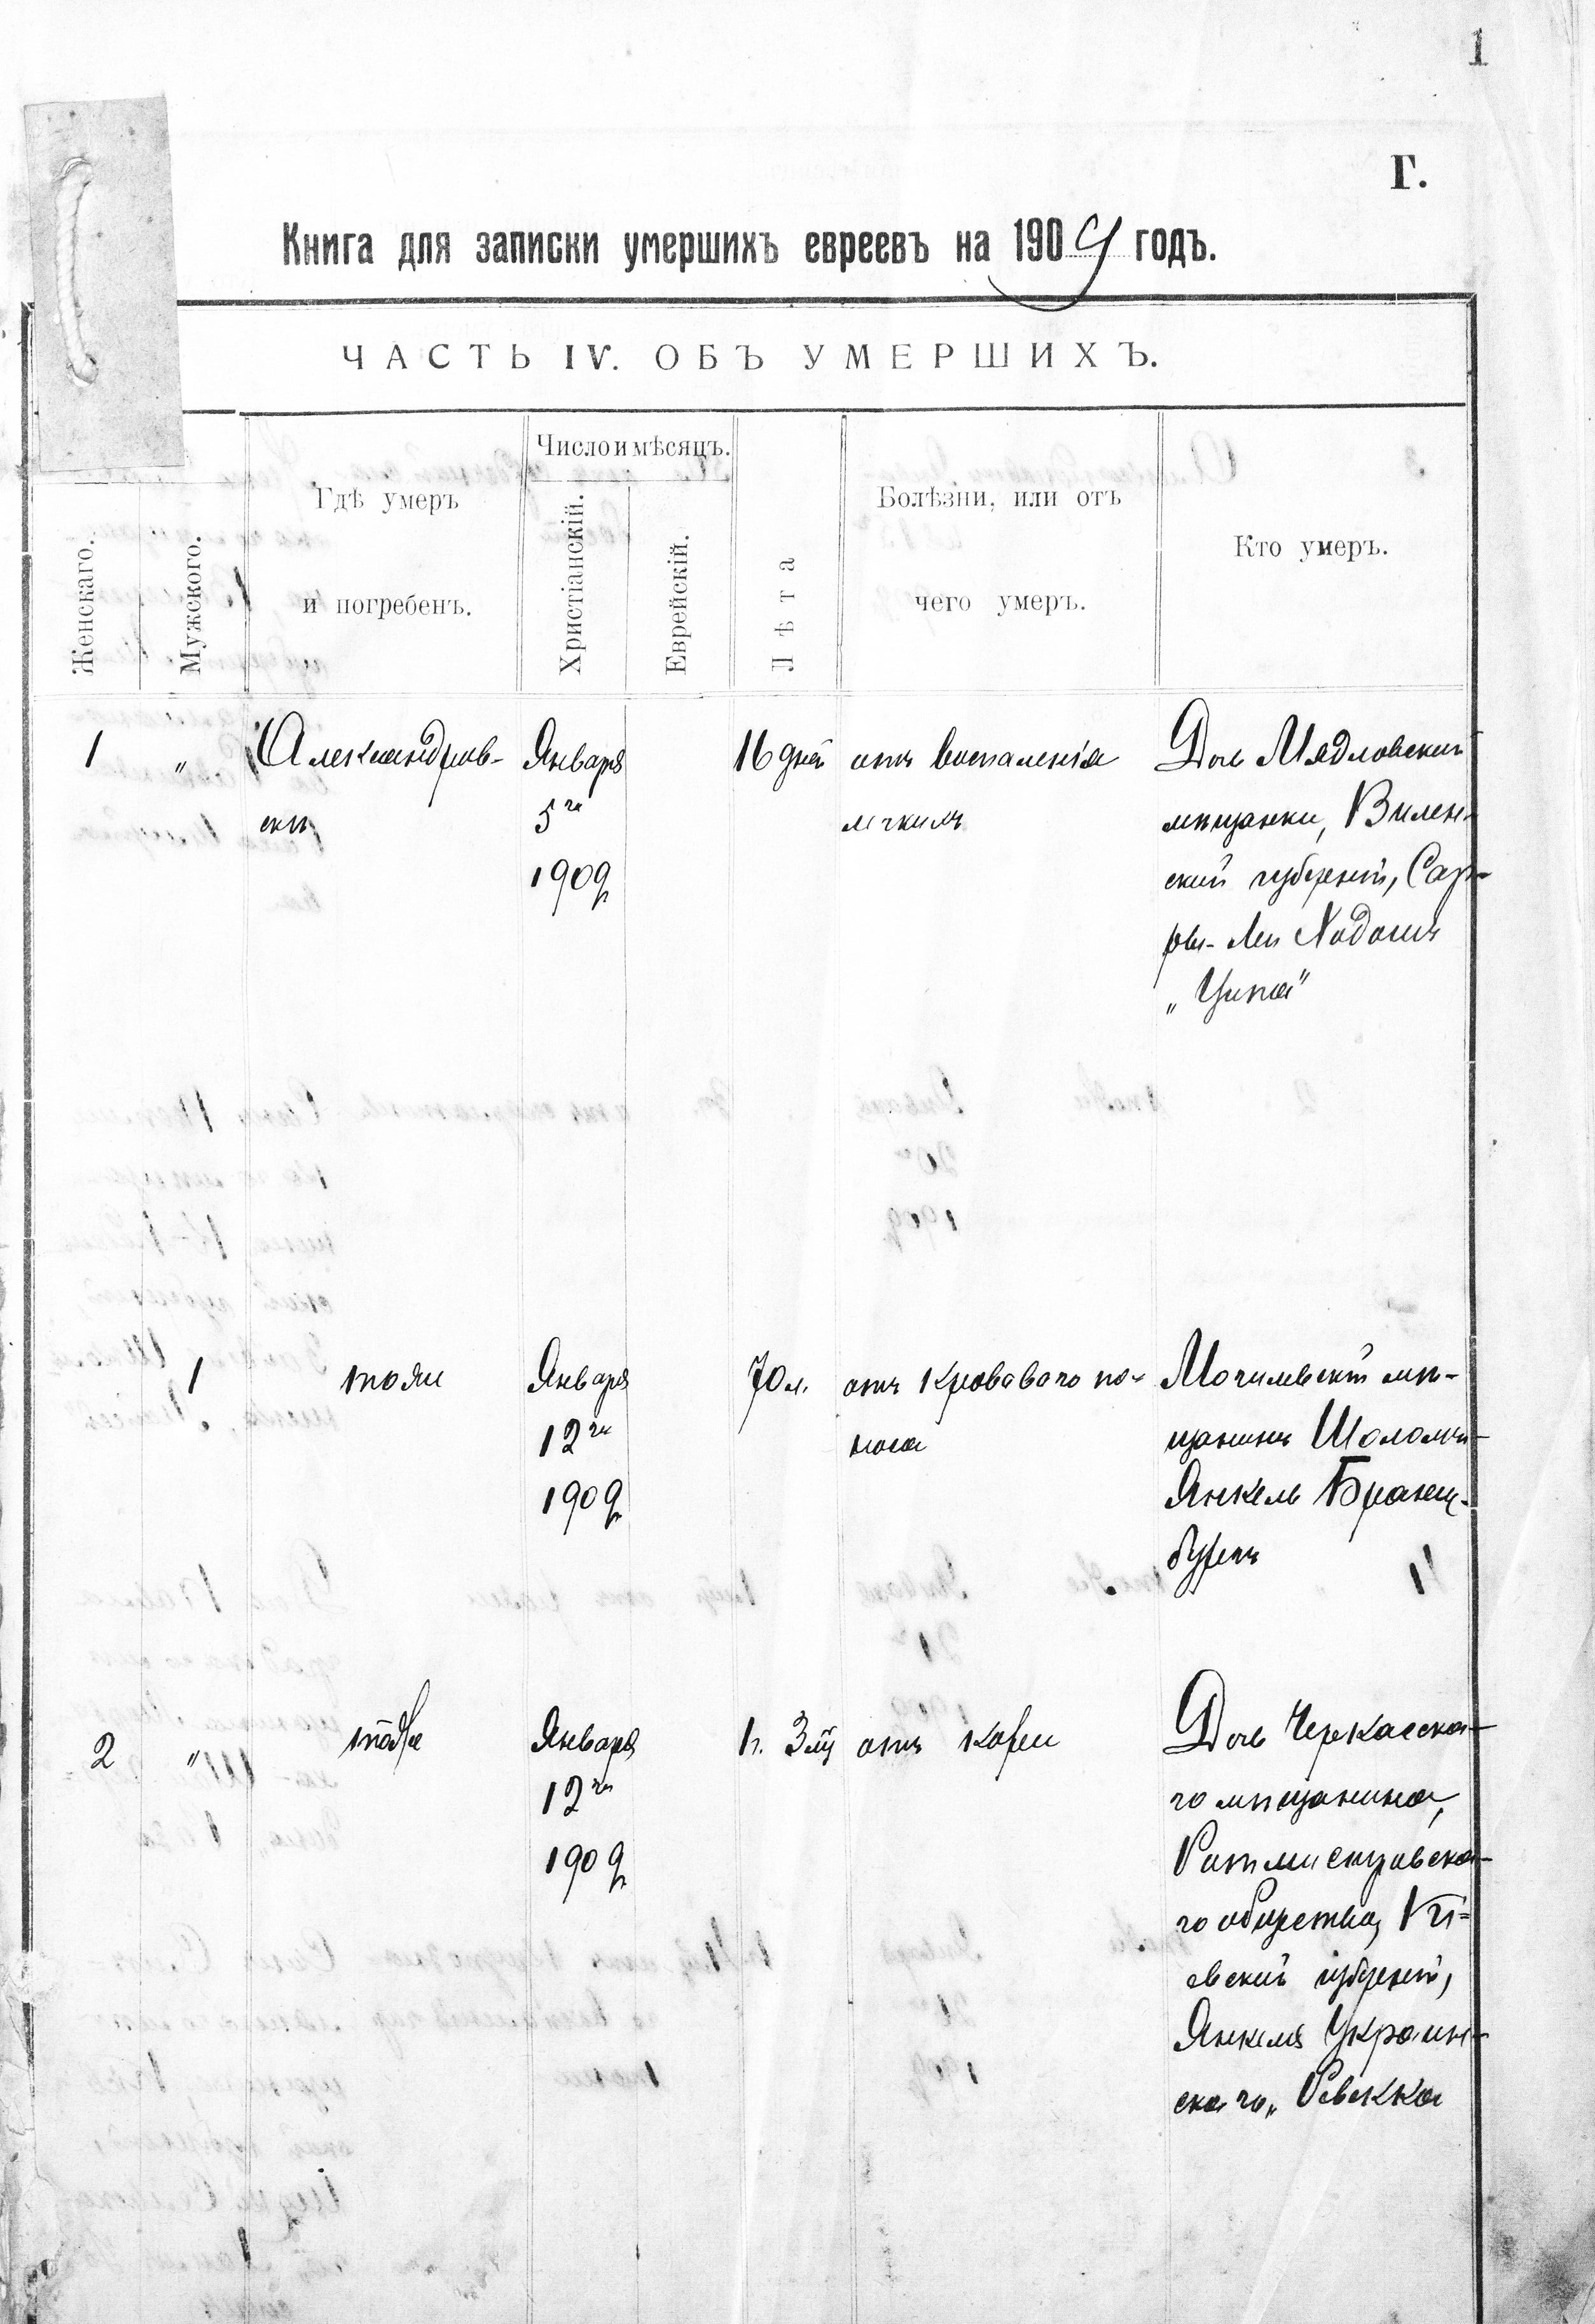 1
Г.
Книга для записки умершихъ евреевъ на 1909 годъ.
ЧАСТЬ IV. ОБЪ УМЕРШИХЪ.
Женскаго.
Мужского.
Гдѣ умеръ
и погребенъ.
Число и мѣсяцъ.
Христіанскій.
Еврейскій.
Лѣта
Болѣзни, или отъ
чего умеръ.
Кто умеръ.
1 " Александров- Января 16 дней отъ воспаленія Дочь Мядловской
ски 5го легкихъ мѣщанки, Вилен-
1909 ской губерніи,
Ходошъ
„Ципа"
1 тоже Января 70 л. отъ кроваваго по- Могилевскій мѣ-
12го носа щанинъ Шоломъ-
1909 Янкель
2 " тоже Января 1 г. 3 мц отъ кори Дочь Черкасска-
12го го мѣщанина,
1909 Ротмистровска-
го общества, Кі-
евской губерніи,
Янкеля Украин-
скаго „Ревекка